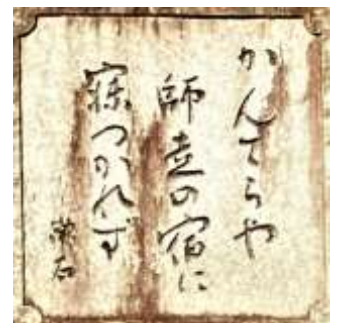 かんてらや
師走の宿に
寐つかれず
漱石